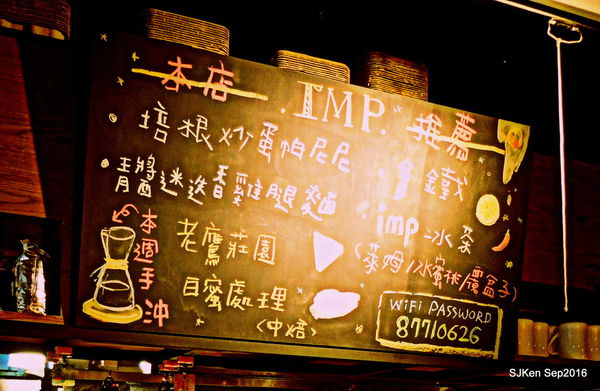 本店 IMP. 推薦
培根炒蛋帕尼尼
拿鐵
醬迷迭香雞腿麵
imp 冰茶
(萊姆/冰蜜桃/覆盆子)
本週手沖
老鷹莊園
白蜜處理
(中焙)
WiFi PASSWORD
87710626
SJKen Sep2016